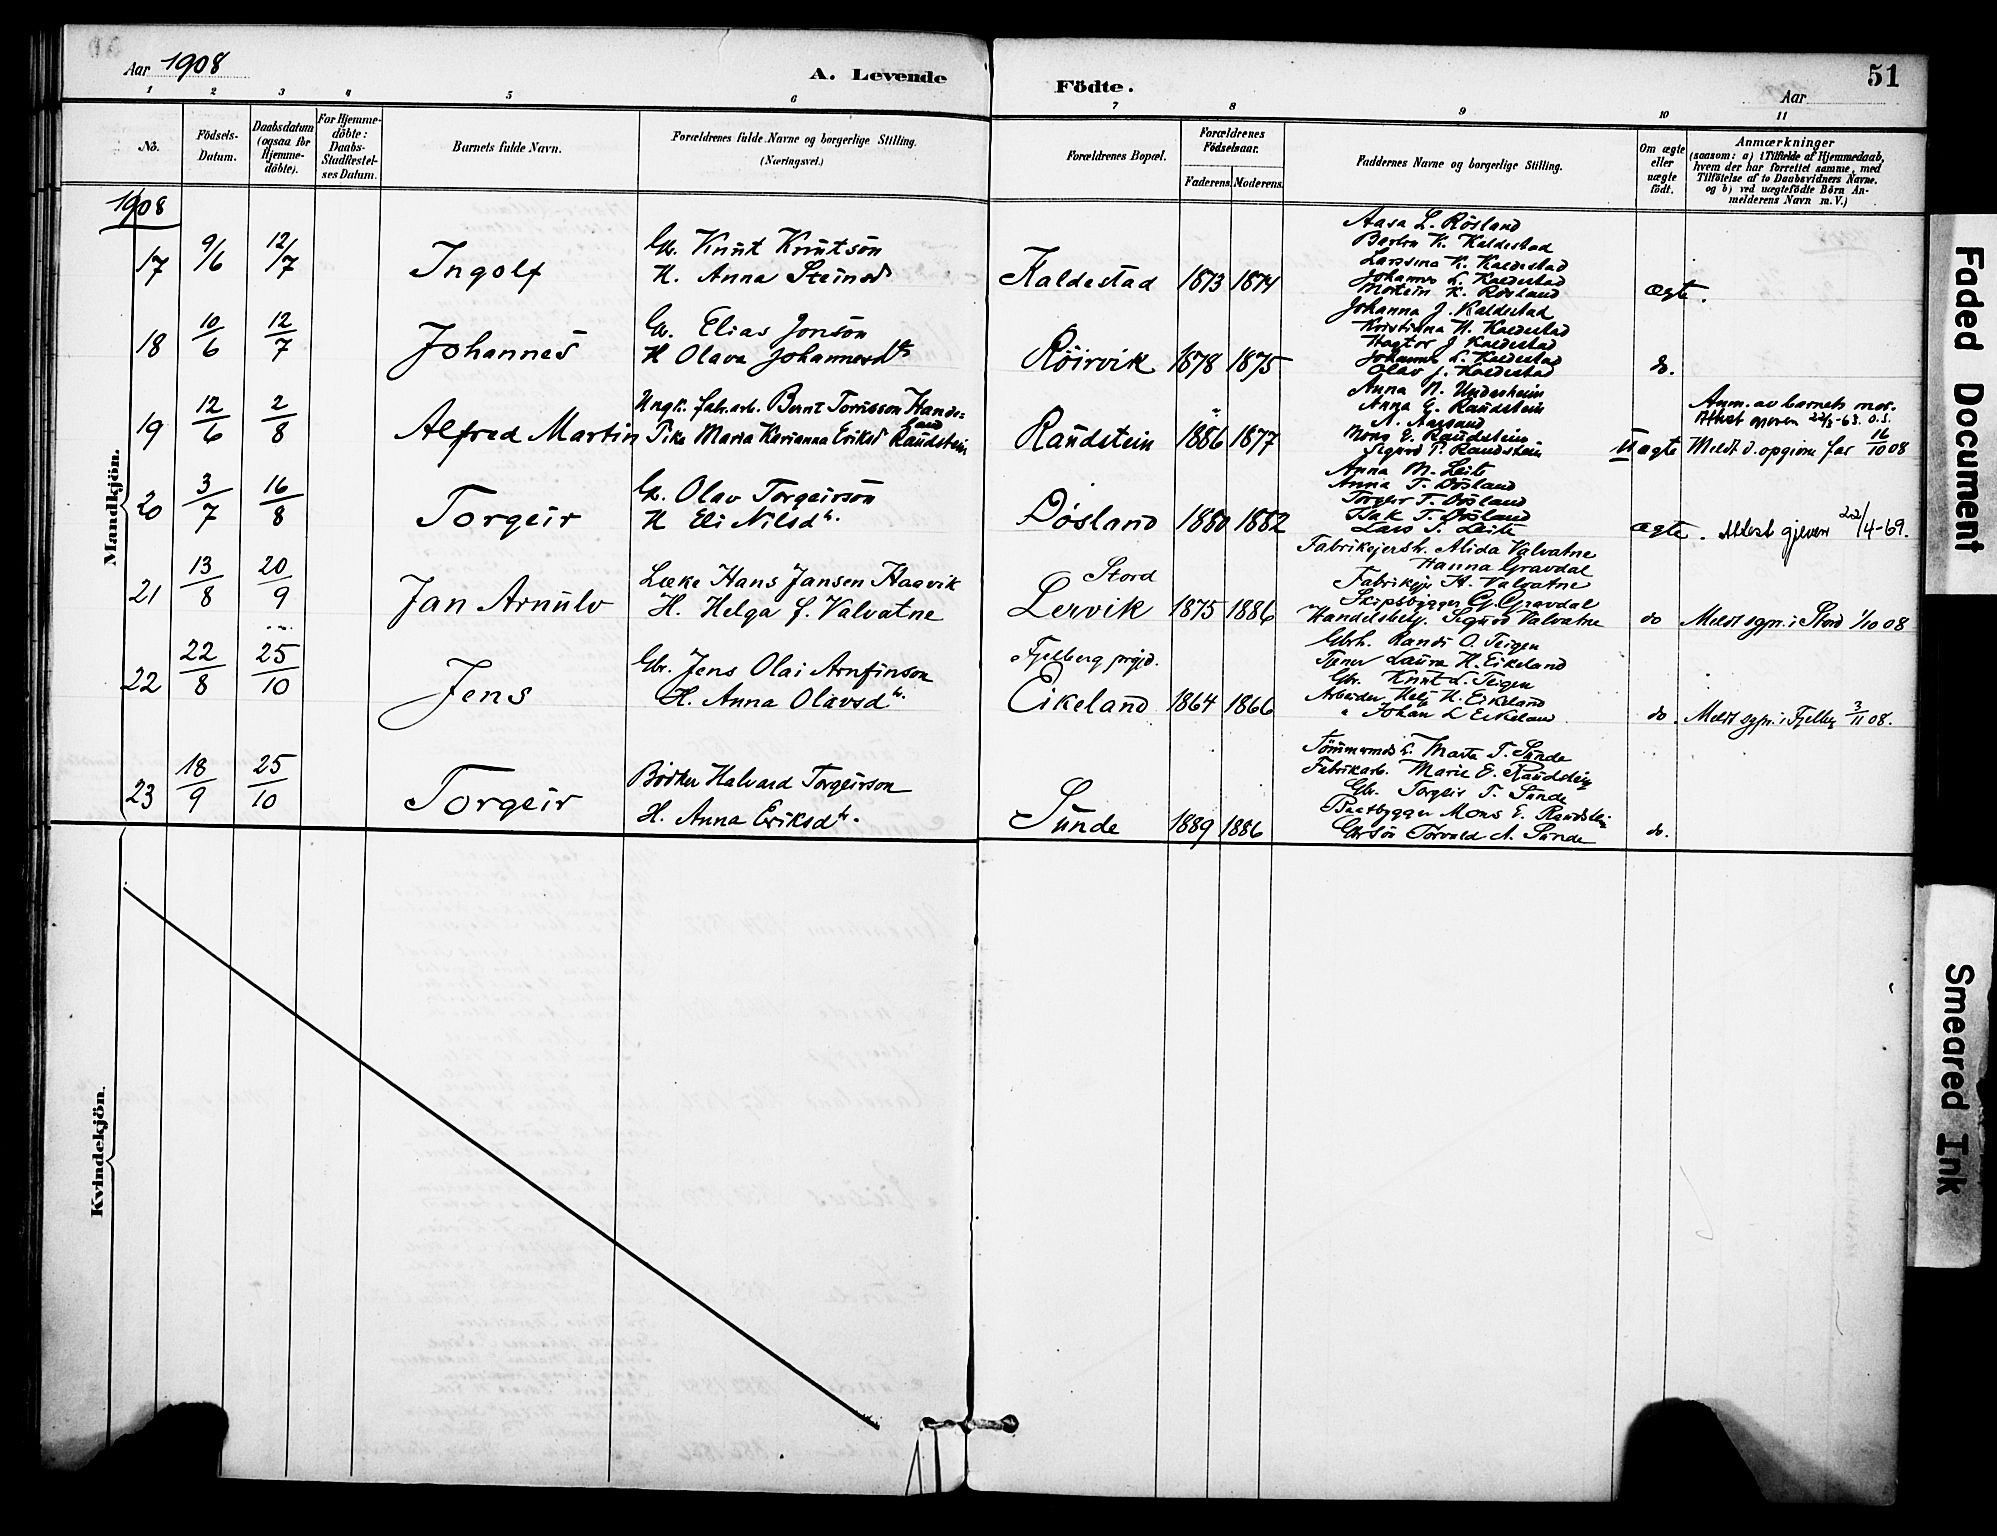 Aar 1908
A. Levende
Födte.
Aar
51
1 2 3 4 5 6 7 8 9 10 11
No.
Födsels-Datum.
Daabsdatum (ogsaa for Hjemme-döbte).
For Hjemme-döbte: Daabs-Stadfæstel-ses Datum.
Barnets fulde Navn.
Forældrenes fulde Navne og borgerlige Stilling. (Næringsvei.)
Forældrenes Bopæl.
Forældrenes Födselsaar.
Faderens. Moderens.
Faddernes Navne og borgerlige Stilling.
Om ægte eller uægte födt.
Anmærkninger (saasom: a) i Tilfælde af Hjemmedaab, hvem der har forrettet samme, med Tilföielse af to Daabsvidners Navne, og b) ved uægtefödte Börn An-melderens Navn m. V.)
1908
Mandkjön.
17 9/6 12/7 Ingolf
Gb. Knut Knutson
H. Anna Steinsd
Kaldestad 1873 1874
Aasa L. Røsland
K. Kaldestad
K. Kaldestad
Johannes L. Kaldestad
K. Røsland
ægte.
18 10/6 12/7 Johannes
Elias Jonson
H Olava Johannesdtr
Røirvik 1878 1875
Johanna J. Kaldestad
Kristianna H. Kaldestad
J Kaldestad
Johannes L. Kaldestad
Olav J. Kaldestad
do.
19 12/6 2/8 Alfred Martin
Ungk. fabr.arb. Bernt
Pike Maria Karianna Eriksd Raudstein
Raudstein 1886 1877
Anna N. Undarheim
Anna E. Raudstein
A. Aarsand
Mons E. Raudstein
Sigurd P. Raudstein
Uægte
Anm. av barnets mor.
Attest 22/3-63. O.S.
Meldt d. opgivne far 16/10 08
20 3/7 16/8 Torgeir
Gb. Olav Torgeirson
H Eli Nilsdtr.
Døsland 1880 1882
Anna M. Leite
Anna T. Døsland
Torgeir T. Døsland
Isak T. Døsland
Lars T. Leite
ægte. Attest gjeven 22/4-69.
21 13/8 20/9 Jan Arnulv
Læke Hans Jansen Haavik
H. Helga f. Valvatne
Stord
Lervik 1875 1886
Fabrikejersh. Alida Valvatne
Hanna Gravdal
Fabrikejer H. Valvatne
Skipsbygger G. Gravdal
Handelsbetj. Sigurd Valvatne
do Meldt sgpr. i Stord 1/10 08
22 22/8 25/10 Jens
Gbr. Jens Olai Arnfinson
H. Anna Olavsdtr.
Fjelberg prgjd.
Eikeland 1864 1866
Gbrh. Randi O. Teigen
Tjener Laura H. Eikeland
Gbr. Knut L. Teigen
Arbeider H. Eikeland
" Johan L Eikeland
do. Meldt sgpr. i Fjelbg 3/11 08.
23 18/9 25/10 Torgeir
Bødker Halvard Torgeirson
H. Anna Eriksdtr.
Sunde 1889 1886
Marta T. Sunde
Fabrikarb. Marie E. Raudstein
Gbr. Torgeir T. Sunde
Baatbygger Mons E. Raudstein
Gbrsøn Torvald A. Sunde
do.
Kvindekjön.
Faded Document
Smeared Ink